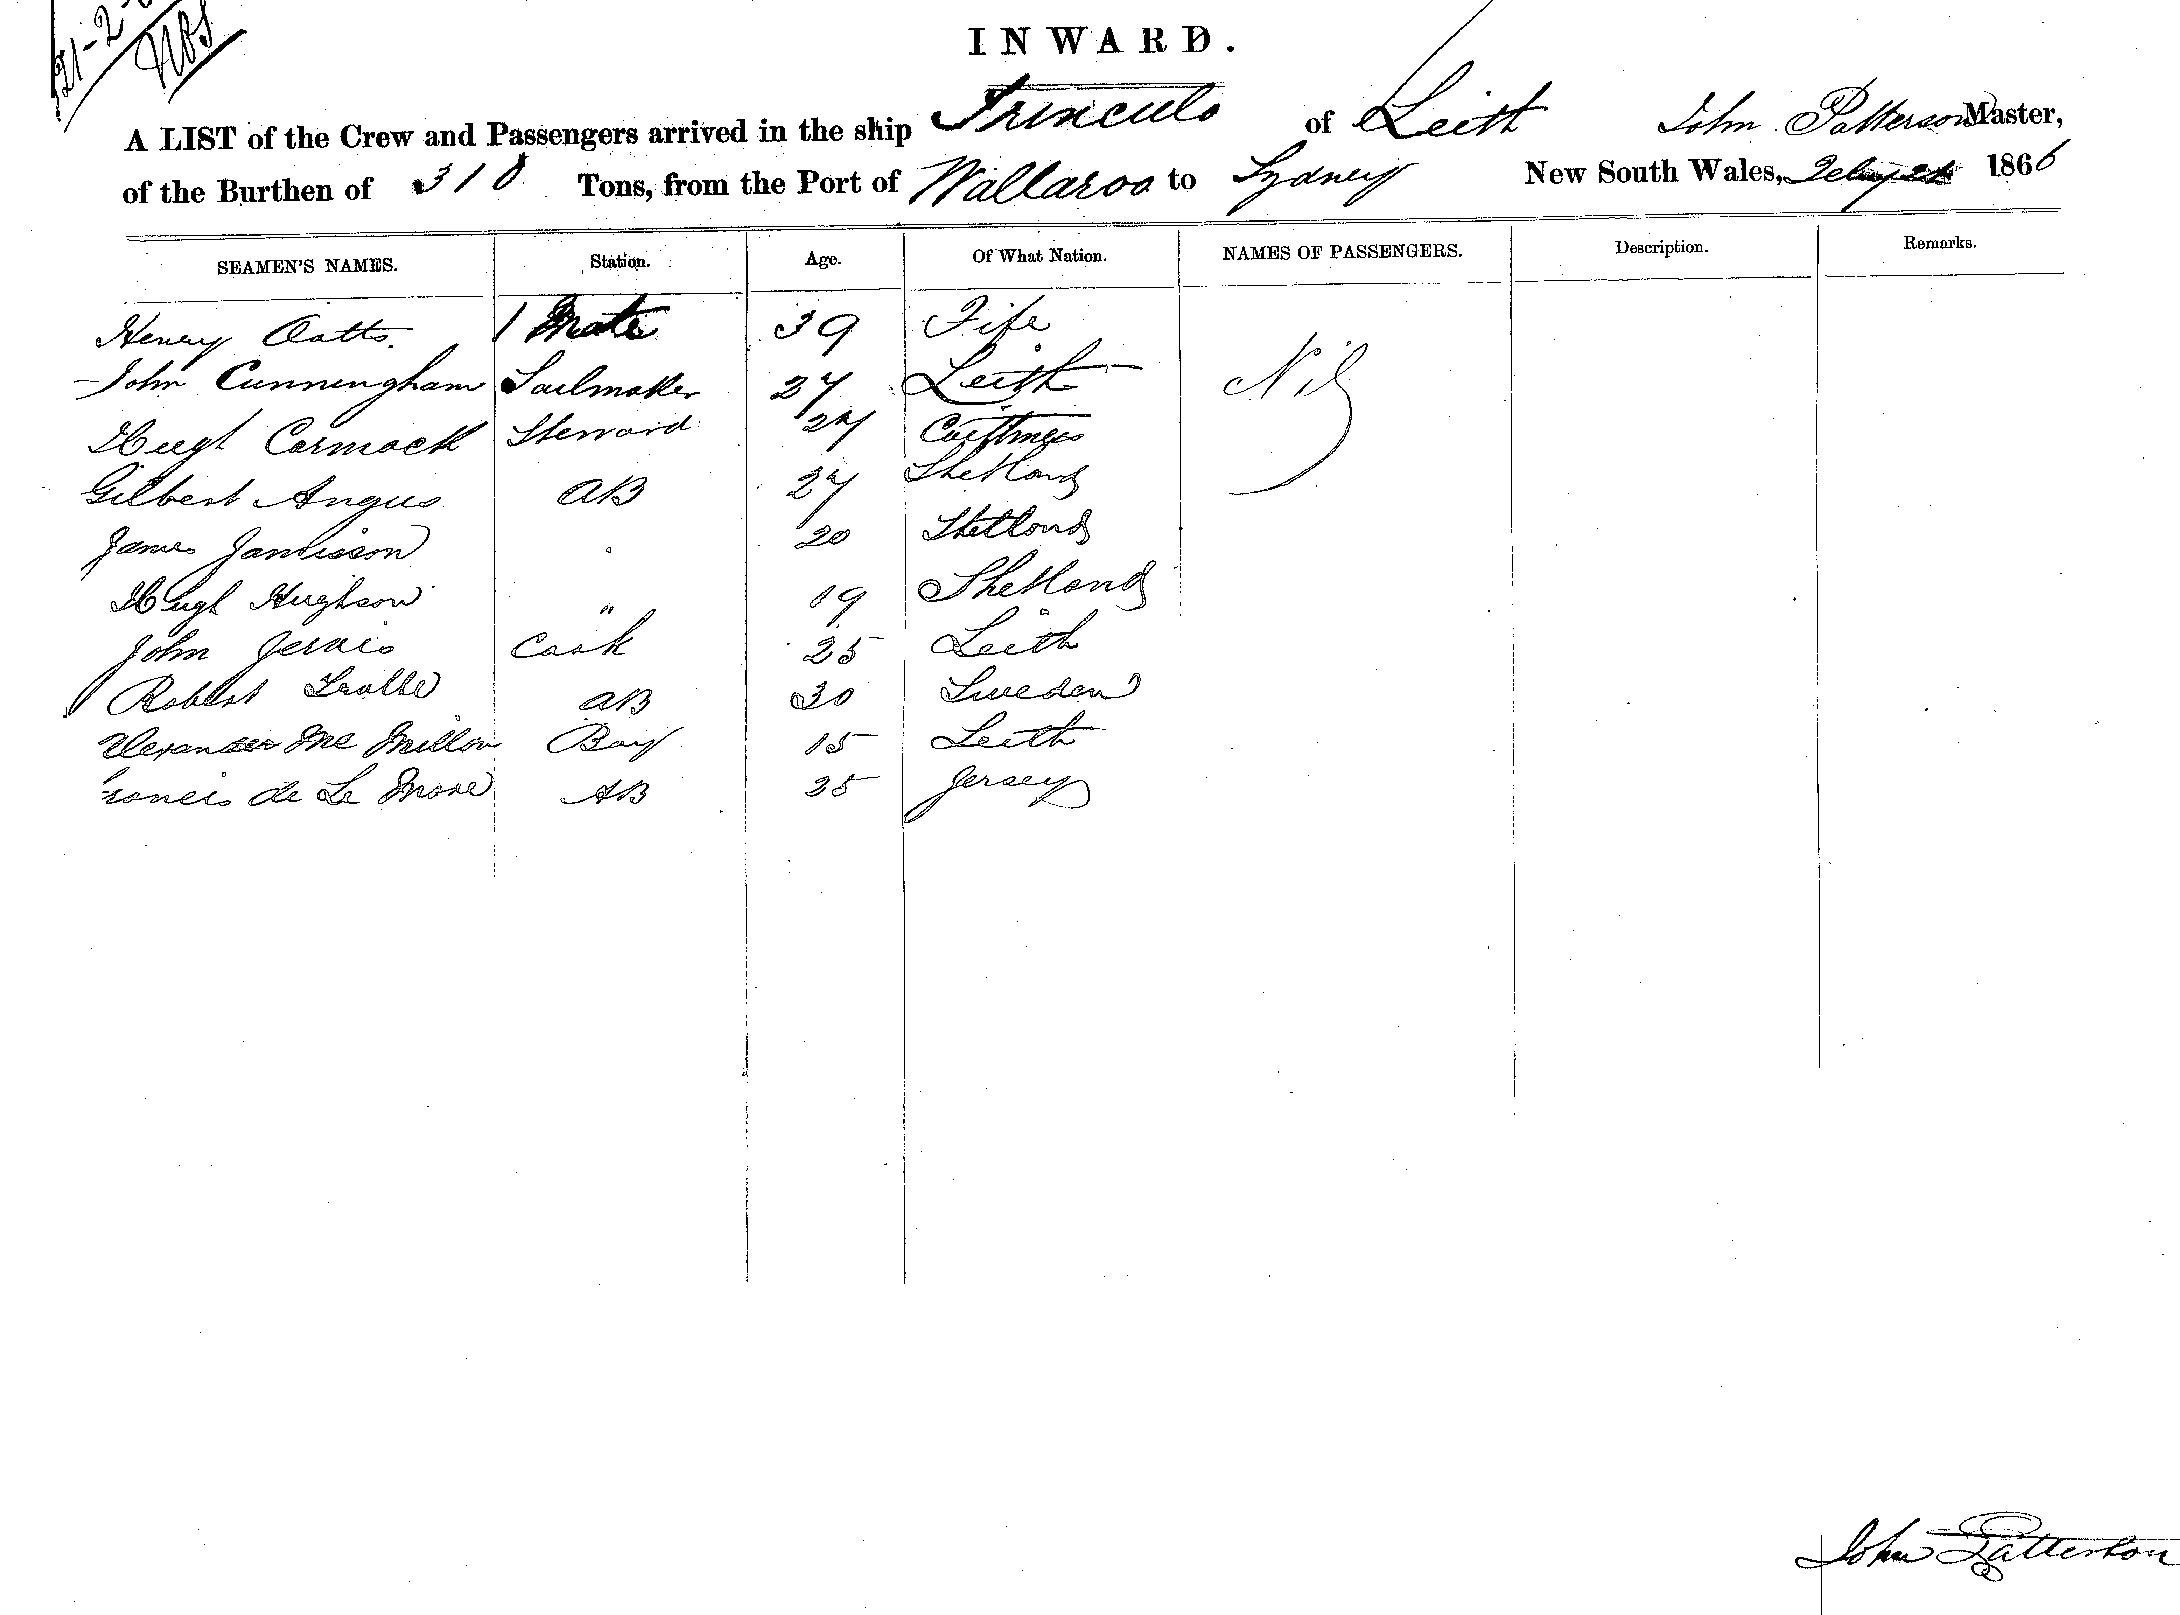 21-2-
INWARD.
A LIST of the Crew and Passengers arrived in the ship Trinculo of Leith John Patterson Master,
of the Burthen of 310 Tons, from the Port of Wallaroo to Sydney New South Wales, 1866
SEAMEN'S NAMES. Station. Age. Of What Nation. NAMES OF PASSENGERS. Description. Remarks.
Henry Oatts. 1 Mate 39 Fife
John Cunningham Sailmaker 27 Leith Nil
Hugh Cormack Steward 24
Gilbert Angus AB 24 Shetland
James Jamisson " 20 Shetland
Hugh Hughson " 19 Shetland
John Jervis Cook 25 Leith
Robert AB 30 Sweden
Alexander Mc Millan Boy 15 Leith
Francis de Le AB 25 Jersey
John Patterson